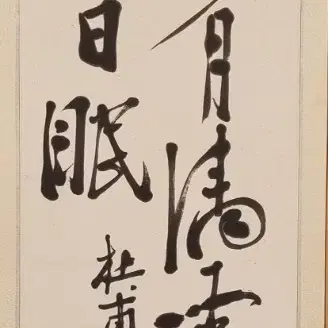 月清宵
日眠
杜甫